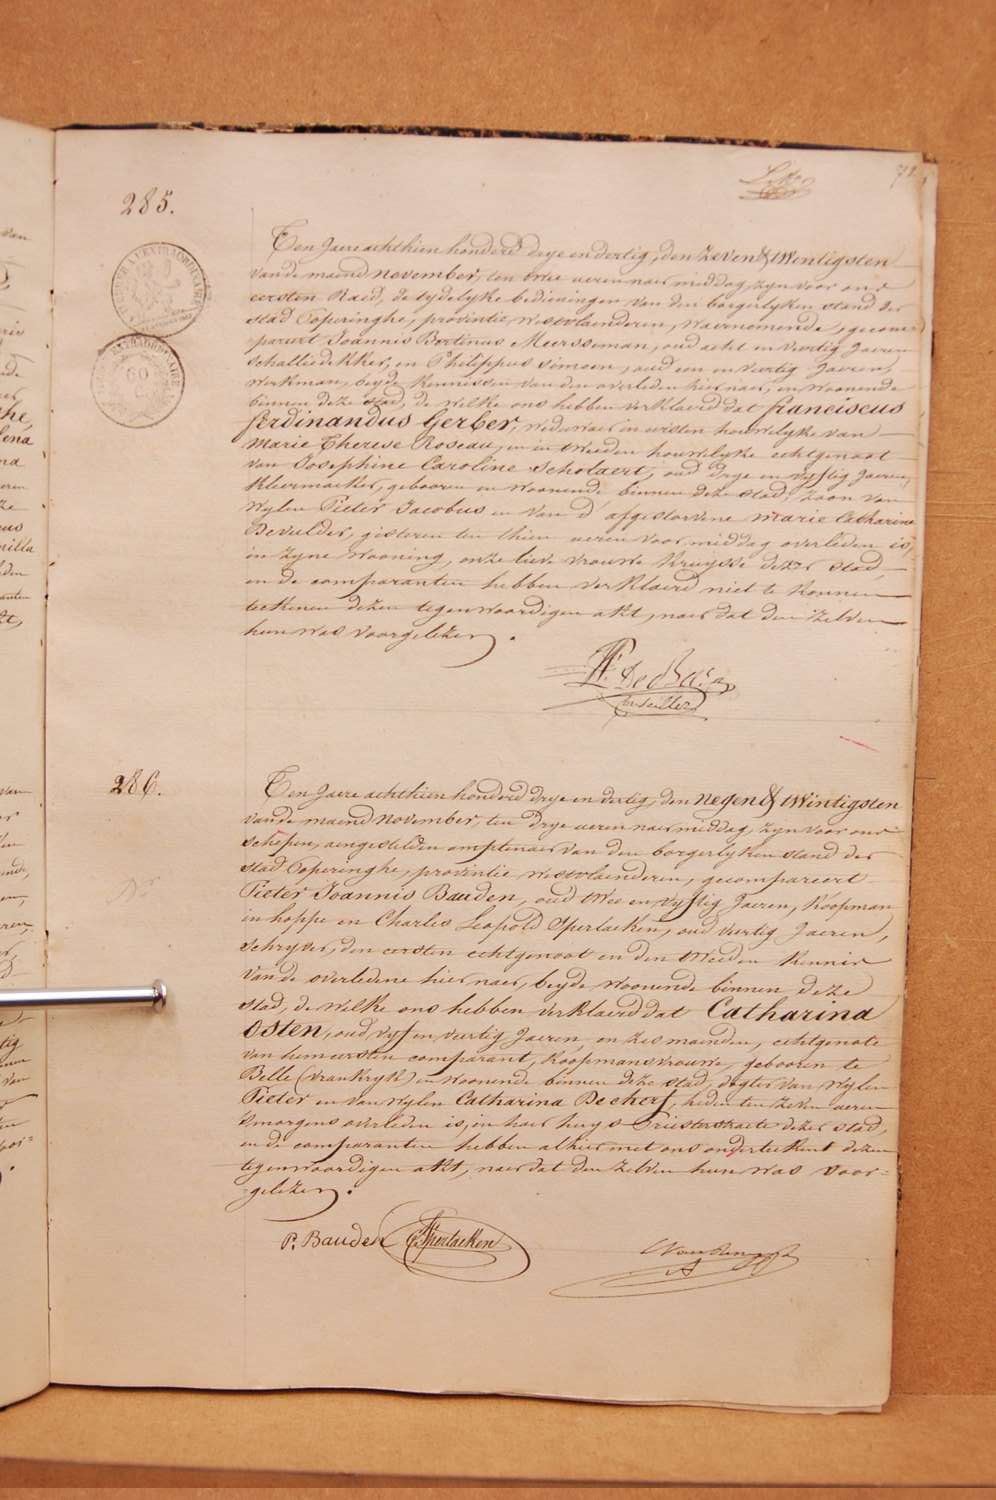 72
285.
Ten Jaere achthien honderd drye en dertig, den zeven & twintigsten
van de maend november, ten twee ueren naer middag, zyn voor ons
eersten Raed, de tydelyke bedieningen van den borgerlyken stand der
stad Poperinghe, provintie westvlaenderen, waernemende, gecom-
pareert Joannis Bertinus Meersseman, oud acht en veertig Jaeren
schalliedekker, en Philippus simoen, oud een en veertig Jaeren,
werkman, beyde kennissen van den overleden hier naer, en woonende
binnen deze stad, de welke ons hebben verklaerd dat franciscus
ferdinandus Gerber, weduwaer in eersten houwelyke van
Marie Therese Roseau, en in tweeden houwelyke echtgenoot
van Josephine Caroline Scholaert, oud drye en vyftig Jaeren,
kleermaeker, gebooren en woonende binnen deze stad, zoon van
wylen Pieter Jacobus en van d' afgestorvene marie Catharina
Devulder, gisteren ten thien ueren voormiddag overleden is,
in zyne wooning, onze lieve vrouwe kruysse dezer stad,
en de comparanten hebben verklaerd niet te konnen
teekenen dezen tegenwoordigen akt, naer dat den zelven
hun was voorgelezen.
286.
Ten Jaere achthien honderd drye en dertig, den negen & twintigsten
van de maend november, ten drye ueren naer middag, zyn voor ons
schepen, aengestelden amptenaer van den borgerlyken stand der
stad Poperinghe, provintie westvlaenderen, gecompareert
Pieter Joannis Bauden, oud twee en vyftig Jaeren, Koopman
in hoppe en Charles Leopold Sperlaeken, oud veertig Jaeren,
schryver, den eersten echtgenoot en den tweeden kennis
van de overledene hier naer, beyde woonende binnen deze
stad, de welke ons hebben verklaerd dat Catharina
Osten, oud vyf en veertig Jaeren en zes maenden, echtgenote
van hem eersten comparant, koopmansvrouwe, gebooren te
Belle (vrankryk) en woonende binnen deze stad, dogter van wylen
Pieter en van wylen Catharina Decherf, heden ten zeven ueren
's morgens overleden is, in haer huys Priesterstraete dezer stad,
en de comparanten hebben alhier met ons onderteekent dezen
tegenwoordigen akt, naer dat den zelven hun was voor-
gelezen.
P. Bauden C. Sperlaeken